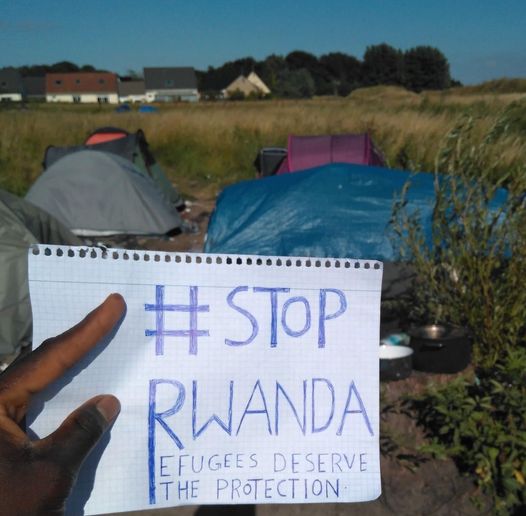 #STOP
RWANDA
REFUGEES DESERVE
THE PROTECTION.